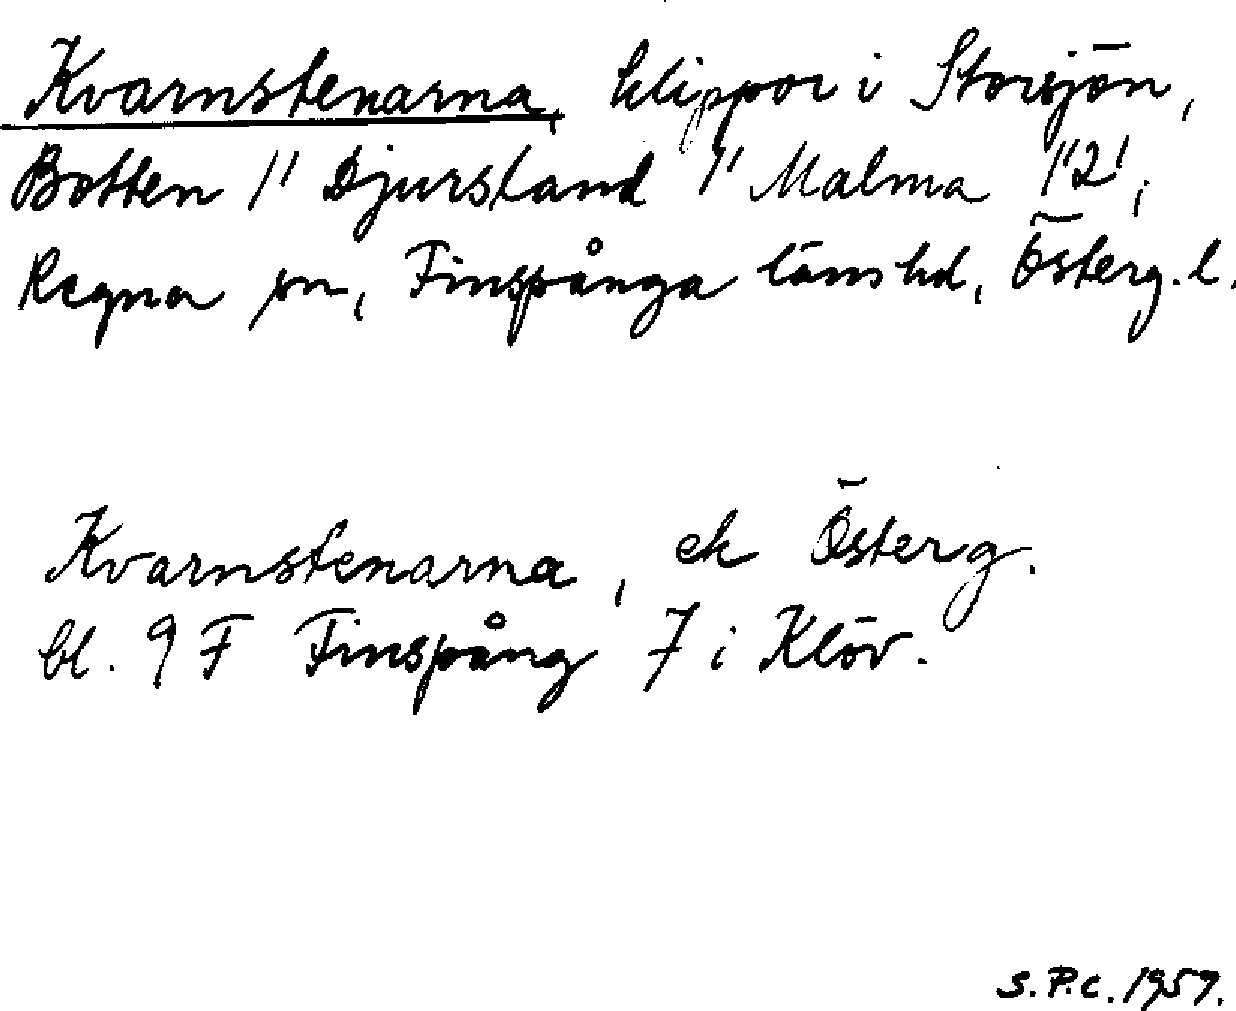 Kvarnstenarna, klippor i Storsjön,
Botten 1' Djursland 1' Malma 1'2',
Regna sn, Finspånga läns hd, Österg. l.
Kvarnstenarna, ek Österg.
bl. 9 F Finspång 7 i Klöv.
S.P.C. 1957.